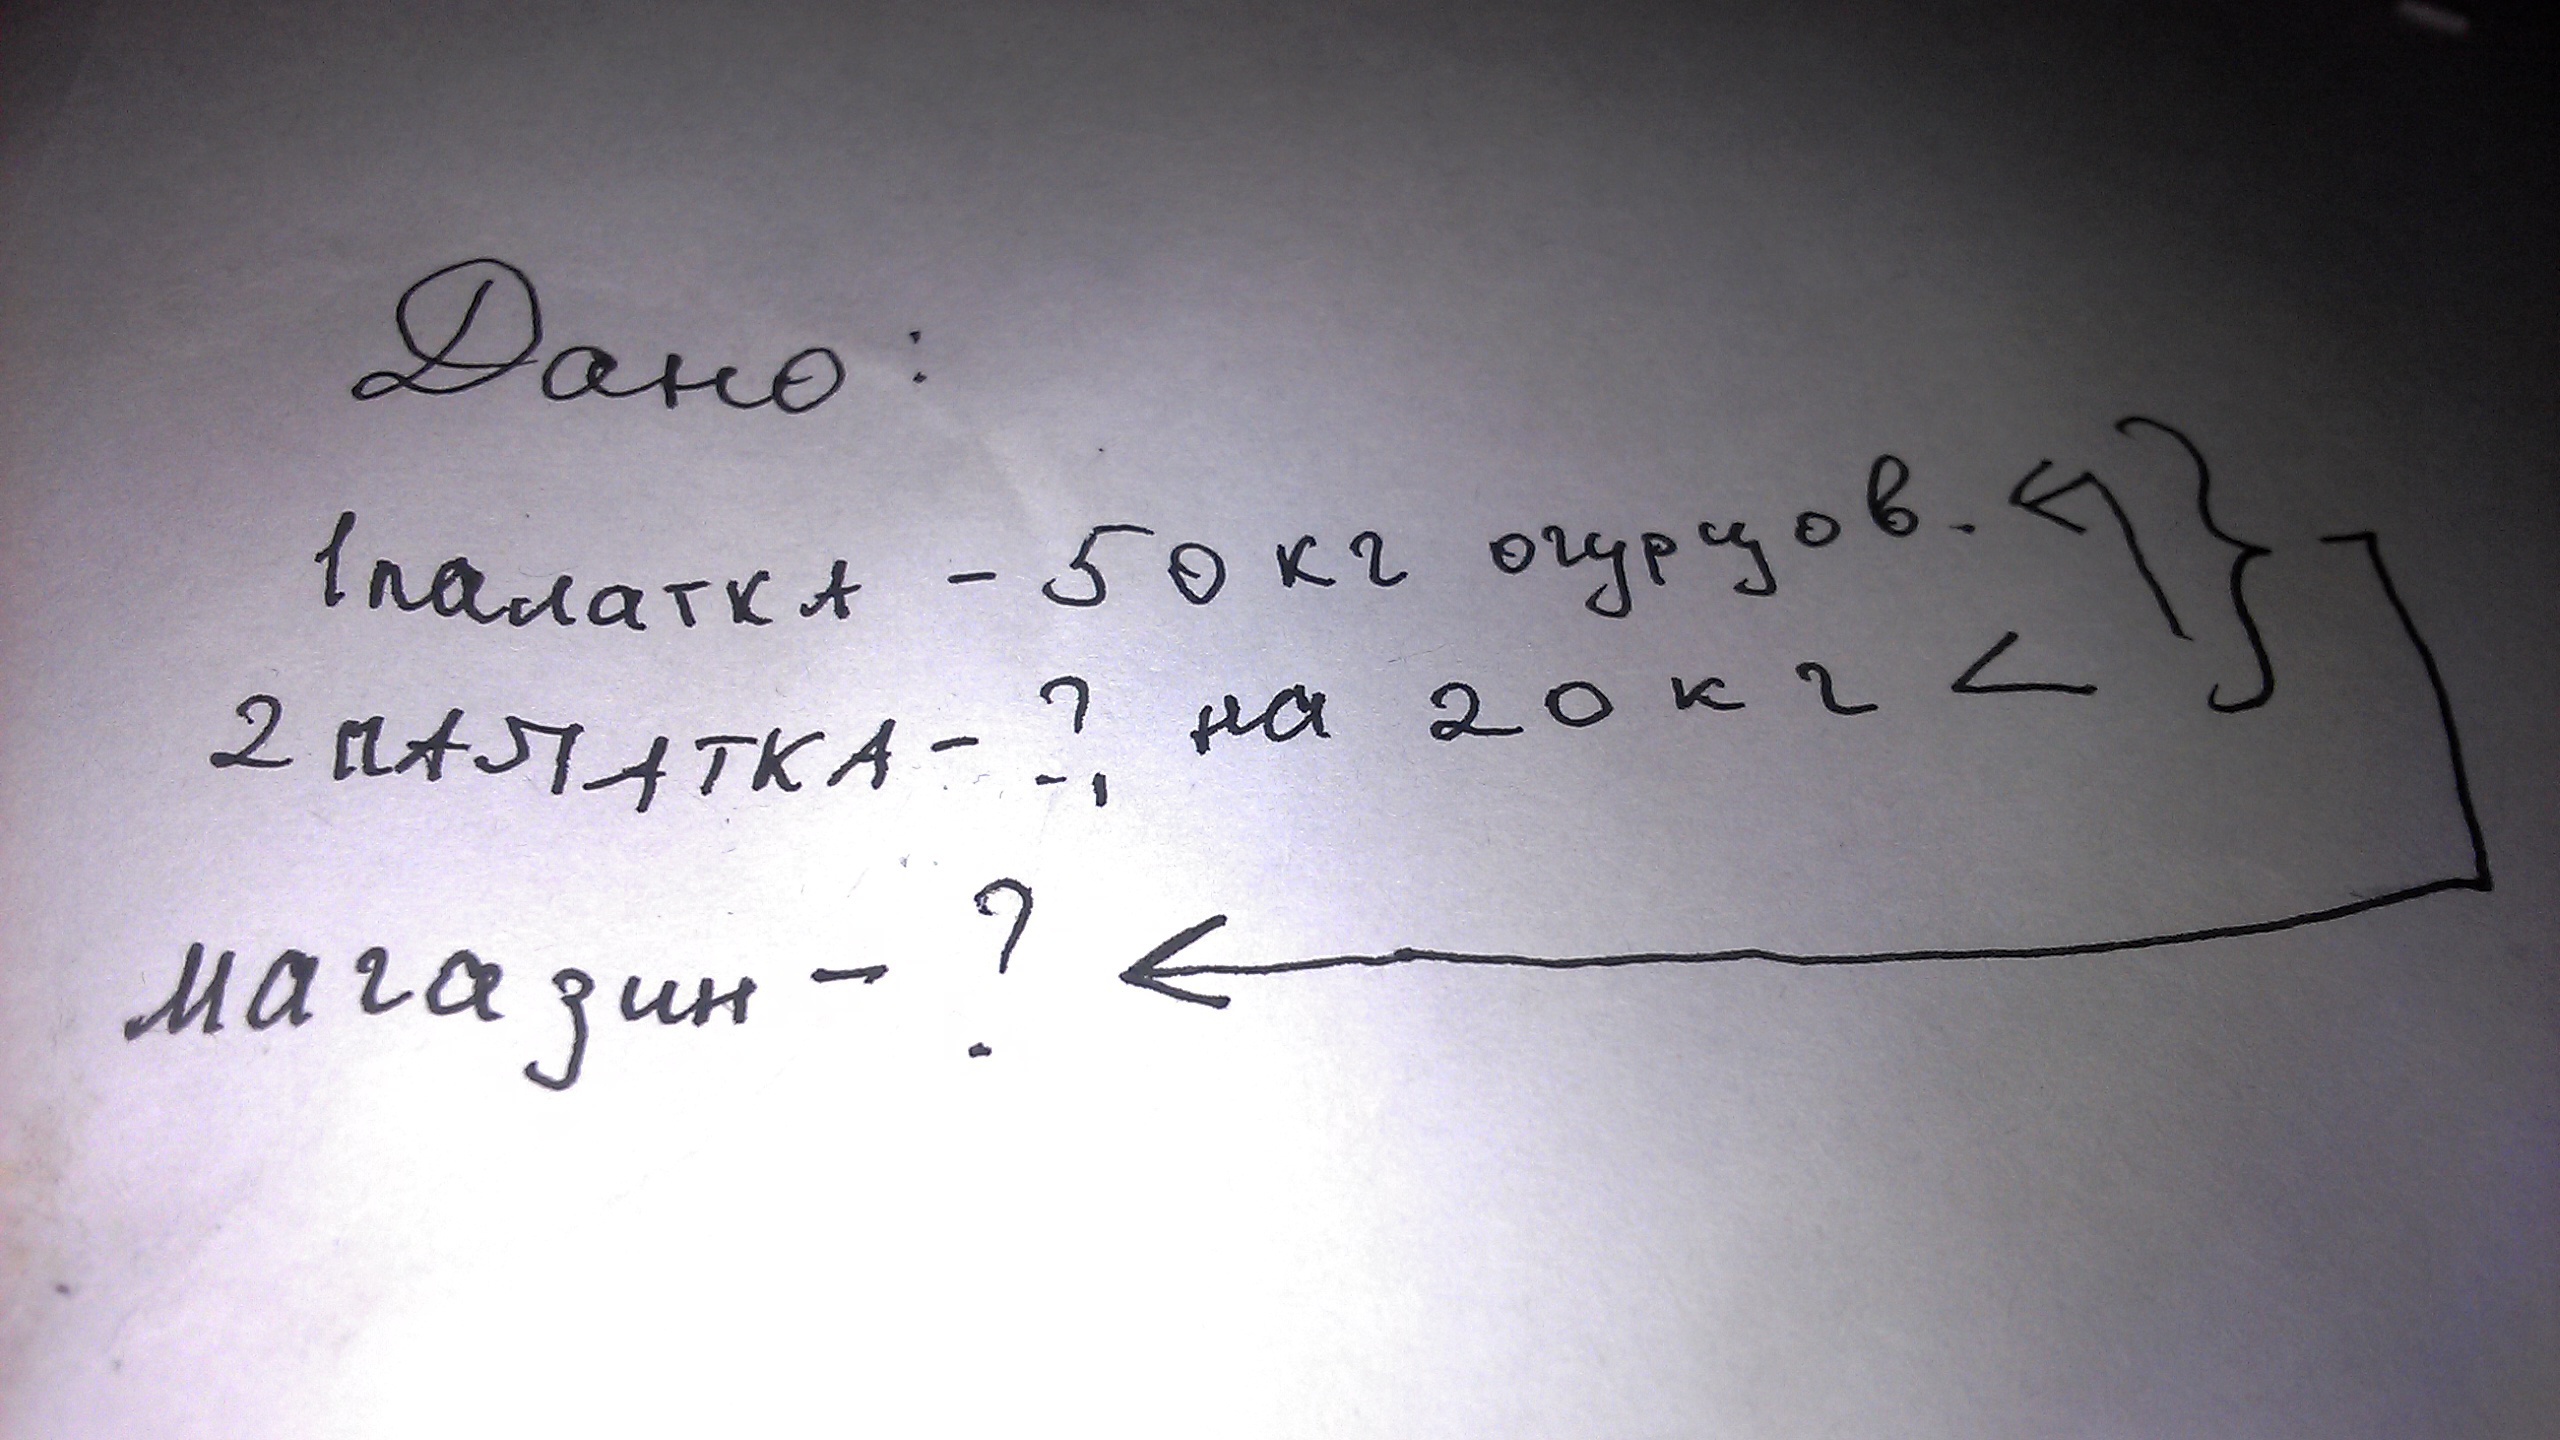 Дано:
1 палатка - 50 кг огурцов.
2 палатка - ? на 20 кг <
магазин - ?